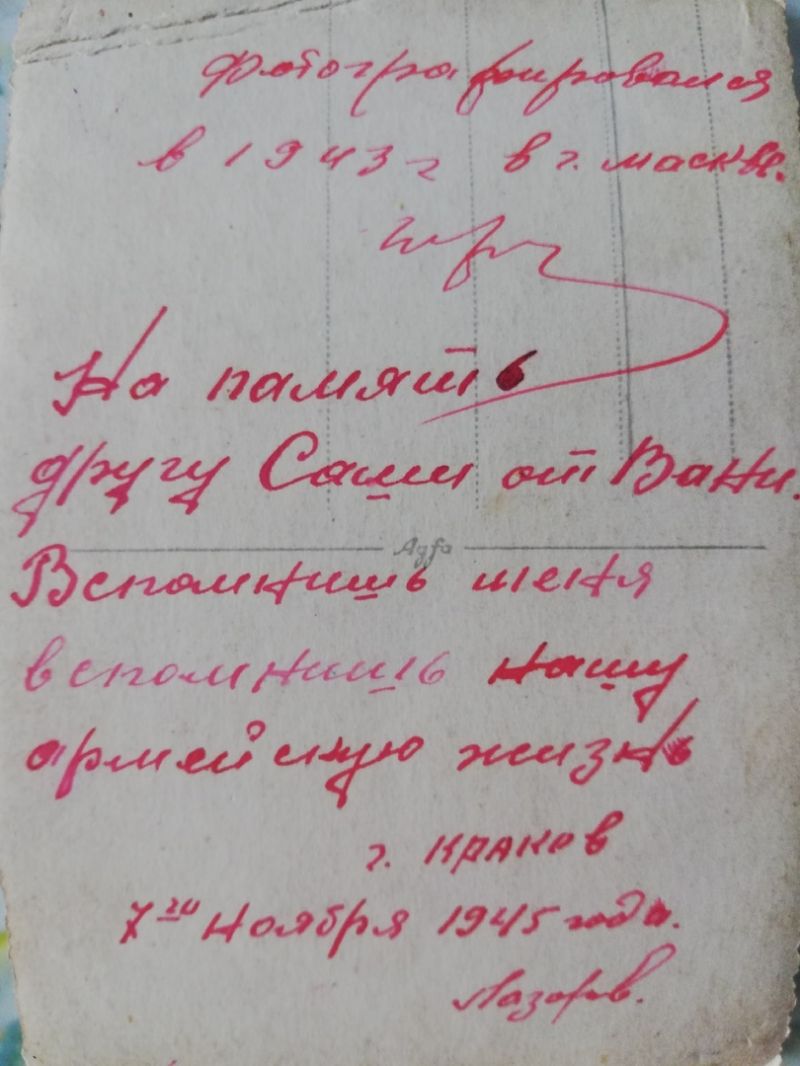 Фотографировался
в 1943 г в г. Москве.
На память
другу Саши от Вани.
Agfa
Вспомнишь меня
вспомнишь нашу
армейскую жизнь
г. Краков
7го Ноября 1945 года.
Лазорев.